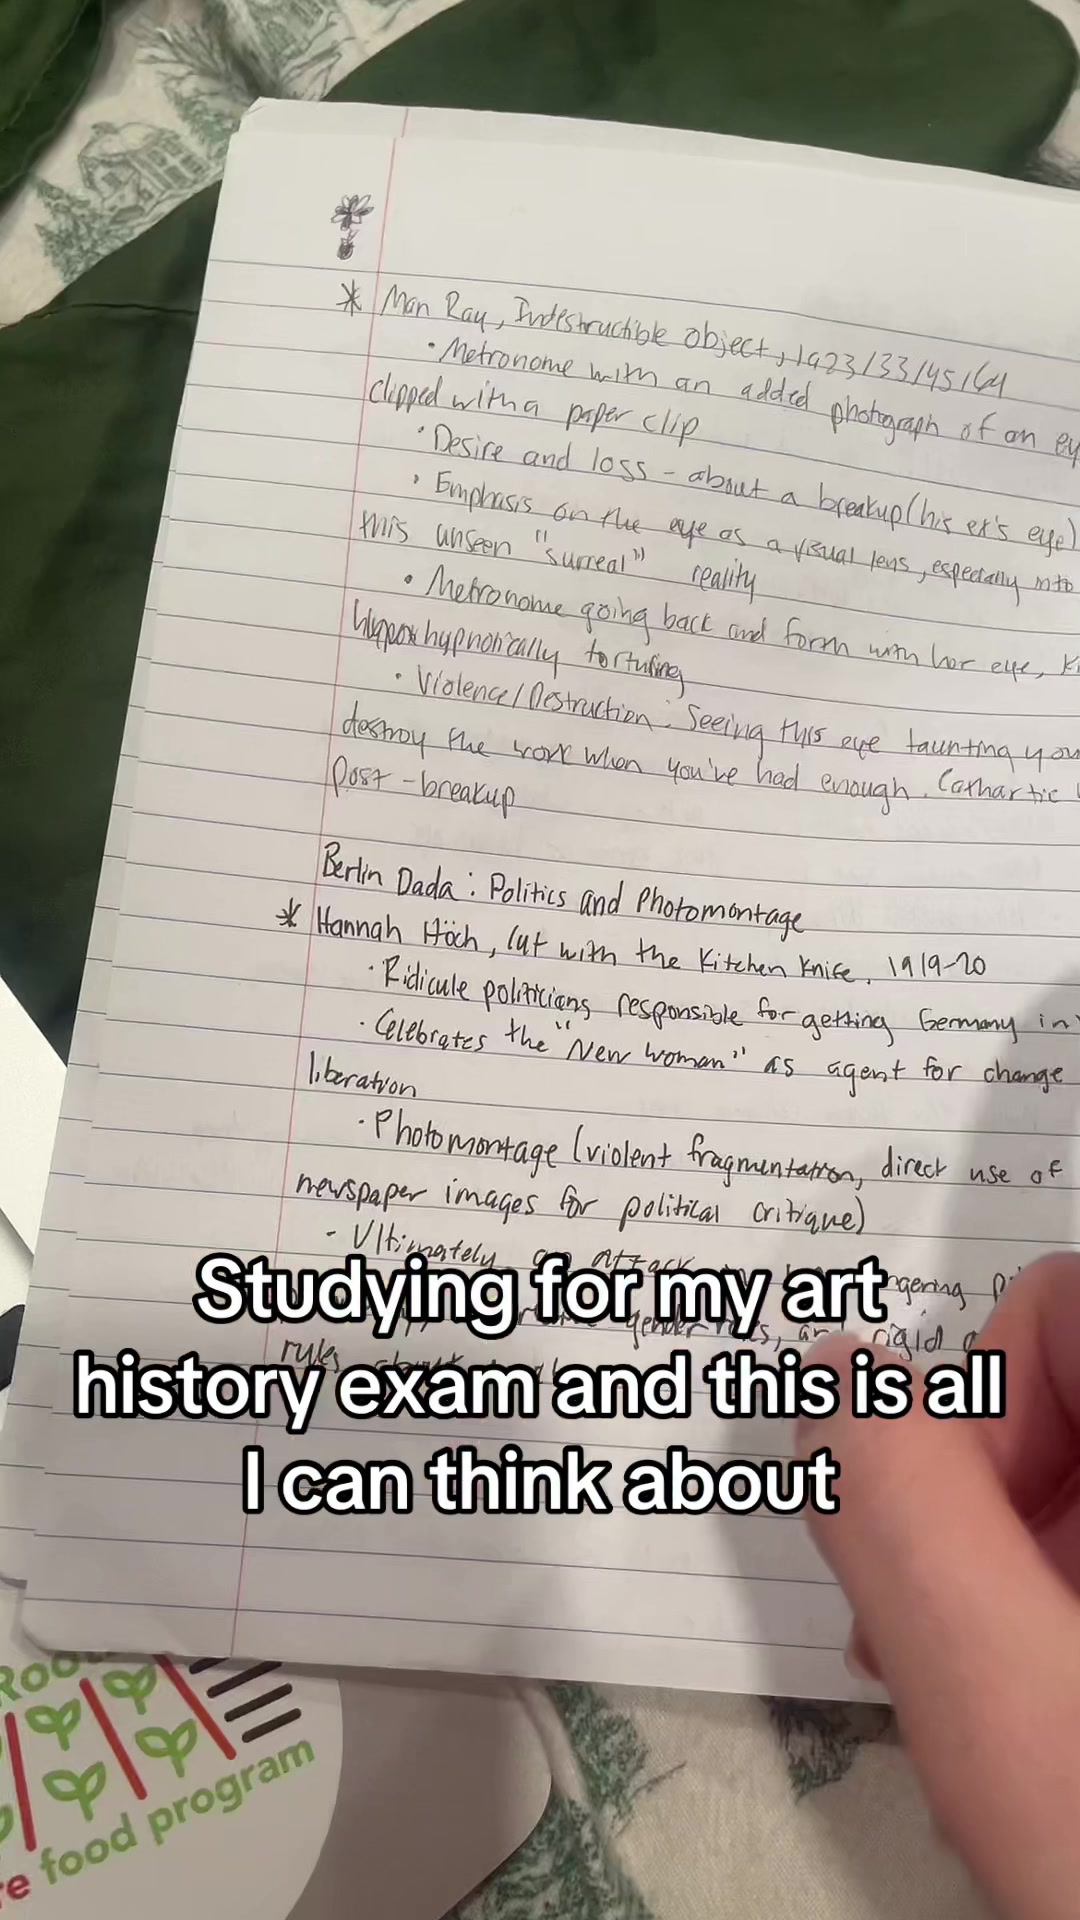 * Man Ray, Indestructible object, 1923/33/45/64
· Metronome with an added photograph of an ey
clipped with a paper clip
· Desire and loss - about a breakup (his ex's eye)
· Emphasis on the eye as a visual lens, especially into
this unseen "surreal" reality
· Metronome going back and form with her eye,
hypnotically torturing
· Violence/Destruction: Seeing this eye taunting you
destroy the work when you've had enough. Cathartic
post-breakup
Berlin Dada: Politics and Photomontage
* Hannah Höch, Cut with the Kitchen Knife, 1919-20
· Ridicule politicians responsible for getting Germany in
· Celebrates the "New Woman" as agent for change
liberation
· Photomontage (violent fragmentation, direct use of
newspaper images for political critique)
- Ultimately, an attack
gender roles, and rigid
rules about
Studying for my art
history exam and this is all
I can think about
Roo
food program